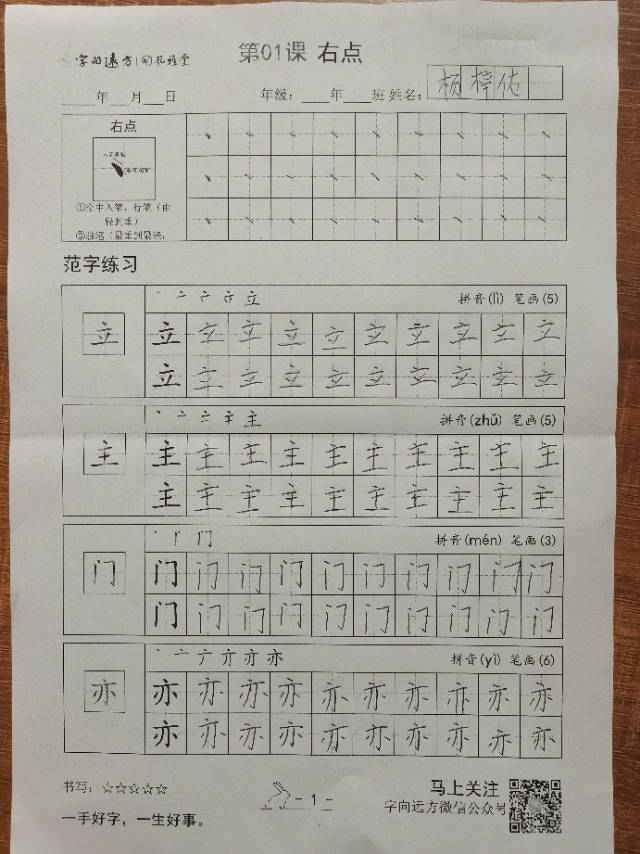 字向遠方
第01课 右点
年 月 日 年级: 年 班 姓名: 杨梓佑
右点
①空中入笔,行笔(由
轻到重)
②收笔(最重到最轻,
范字练习
拼音(lì) 笔画(5)
立 立 立 立 立 立 立 立 立 立 立
立 立 立 立 立 立 立 立 立 立
拼音(zhǔ) 笔画(5)
主 主 主 主 主 主 主 主 主 主 主
主 主 主 主 主 主 主 主 主 主
拼音(mén) 笔画(3)
门 门 门 门 门 门 门 门 门 门 门
门 门 门 门 门 门 门 门 门 门
拼音(yì) 笔画(6)
亦 亦 亦 亦 亦 亦 亦 亦 亦 亦 亦
亦 亦 亦 亦 亦 亦 亦 亦 亦 亦
书写: ☆☆☆☆☆
一手好字,一生好事。
- 1 -
马上关注
字向远方微信公众号